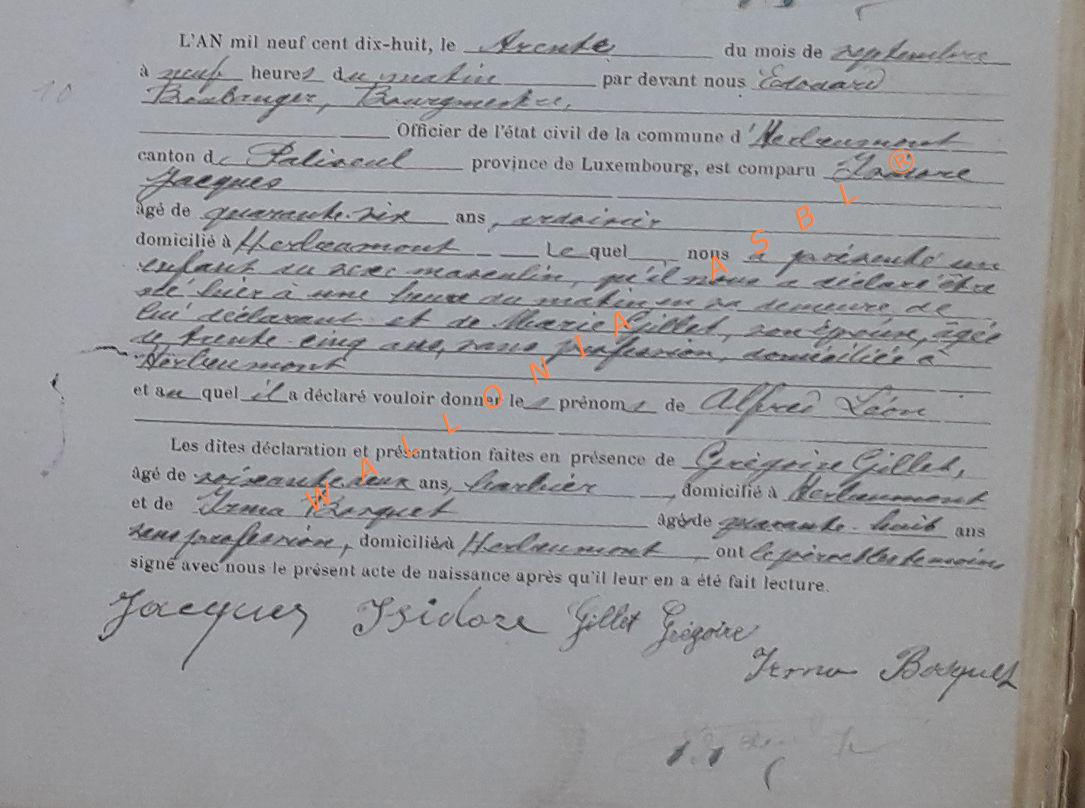 10
L'AN mil neuf cent dix-huit, le trente du mois de septembre
à neuf heures du matin par devant nous Edouard
Boulanger, Bourgmestre,
Officier de l'état civil de la commune d'Herbeumont
canton de Paliseul province de Luxembourg, est comparu Isidore
Jacques
âgé de quarante-six ans, ardoisier
domicilié à Herbeumont Le quel, nous a présenté un
enfant du sexe masculin, qu'il nous a déclaré être
né hier à une heure du matin en sa demeure, de
lui déclarant et de Marie Gillet, son épouse, âgée
de trente-cinq ans, sans profession, domiciliée à
Herbeumont
et au quel il a déclaré vouloir donner les prénoms de Alfred Léon
Les dites déclaration et présentation faites en présence de Grégoire Gillet,
âgé de soixante-deux ans, barbier, domicilié à Herbeumont
et de Irma Bosquet âgée de quarante-huit ans
sans profession, domiciliée à Herbeumont, ont le père et les témoins
signé avec nous le présent acte de naissance après qu'il leur en a été fait lecture.
Jacques Isidore Gillet Grégoire
Irma Bosquet
WALLONIA ASBL ®